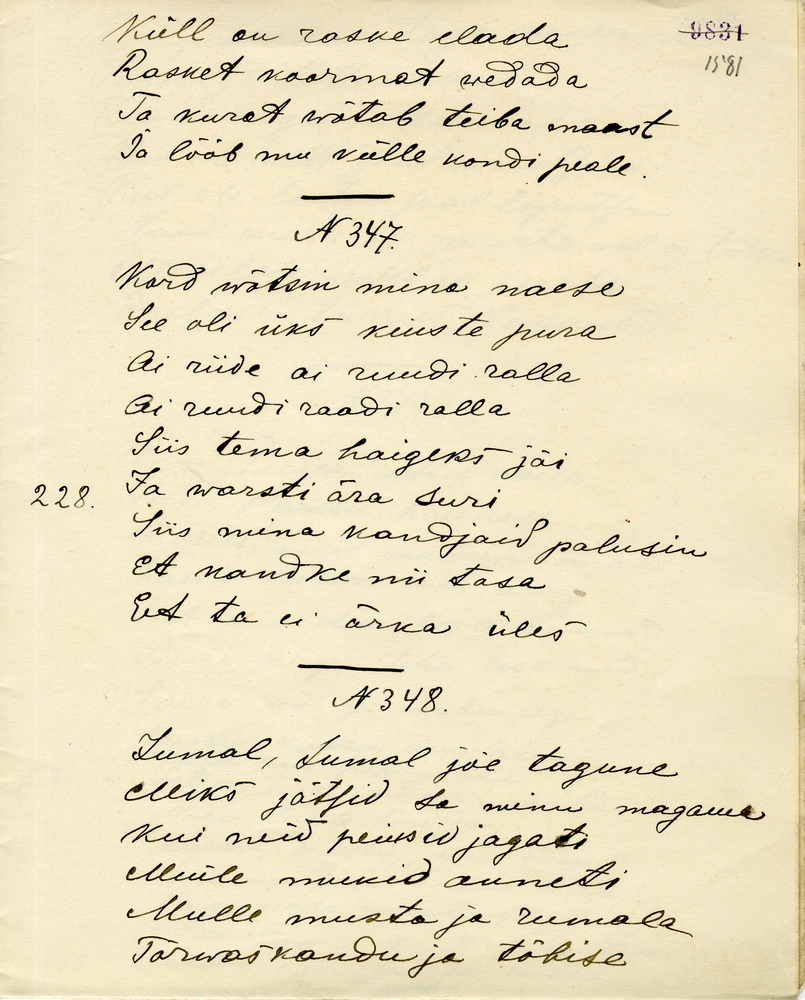 Küll on raske elada
9831
1581
Rasket koormat wedada
Ja kurat wõtab teiba maast
Ja lööb mu külle kondi peale.
N 347.
Kord wõtsin mina naese
See oli üks kuiste pura
Ai riide ai ruudi ralla
Ai ruudi raadi ralla
Siis tema haigeks jäi
228.
Ja warsti ära suri
Siis mina kandjaid palusin
Et kandke nii tasa
Et ta ei ärka üles
N 348.
Jumal, Jumal jõe tagune
Miks jätsid sa minu magama
Kui neid peiusid jagati
Muile mukid anneti
Mulle musta ja rumala
Tõrwaskandu ja tõbise